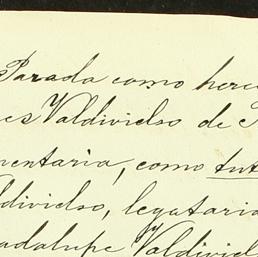 Parada como here
es Valdivielso de
mentaria, como tut
ldivielso, legataria
uadalupe Valdiviel